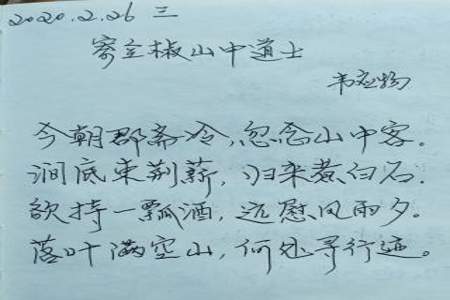 2020.2.26 三
寄全椒山中道士
韦应物
今朝郡斋冷,忽念山中客。
涧底束荆薪,归来煮白石.
欲持一瓢酒,远慰风雨夕。
落叶满空山,何处寻行迹。